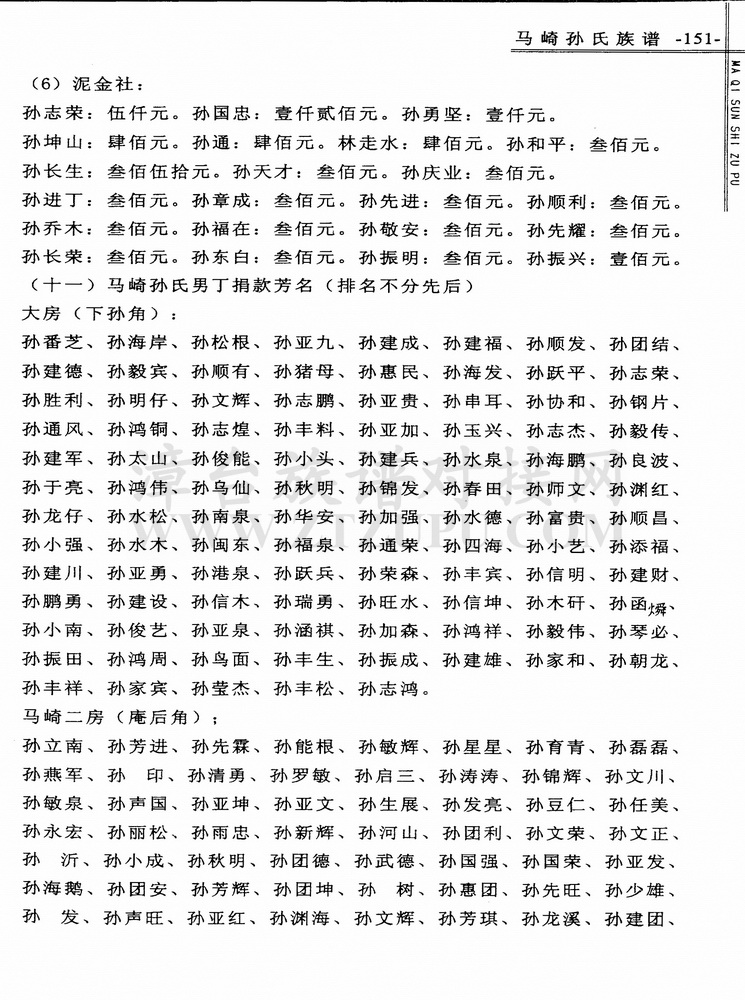 马崎孙氏族谱 -151-
MA QI SUN SHI ZU PU
（6）泥金社：
孙志荣：伍仟元。孙国忠：壹仟贰佰元。孙勇坚：壹仟元。
孙坤山：肆佰元。孙通：肆佰元。林走水：肆佰元。孙和平：叁佰元。
孙长生：叁佰伍拾元。孙天才：叁佰元。孙庆业：叁佰元。
孙进丁：叁佰元。孙章成：叁佰元。孙先进：叁佰元。孙顺利：叁佰元。
孙乔木：叁佰元。孙福在：叁佰元。孙敬安：叁佰元。孙先耀：叁佰元。
孙长荣：叁佰元。孙东白：叁佰元。孙振明：叁佰元。孙振兴：壹佰元。
（十一）马崎孙氏男丁捐款芳名（排名不分先后）
大房（下孙角）：
孙番芝、孙海岸、孙松根、孙亚九、孙建成、孙建福、孙顺发、孙团结、
孙建德、孙毅宾、孙顺有、孙猪母、孙惠民、孙海发、孙跃平、孙志荣、
孙胜利、孙明仔、孙文辉、孙志鹏、孙亚贵、孙串耳、孙协和、孙钢片、
孙通风、孙鸿铜、孙志煌、孙丰料、孙亚加、孙玉兴、孙志杰、孙毅传、
孙建军、孙太山、孙俊能、孙小头、孙建兵、孙水泉、孙海鹏、孙良波、
孙于亮、孙鸿伟、孙乌仙、孙秋明、孙锦发、孙春田、孙师文、孙渊红、
孙龙仔、孙水松、孙南泉、孙华安、孙加强、孙水德、孙富贵、孙顺昌、
孙小强、孙水木、孙闽东、孙福泉、孙通荣、孙四海、孙小艺、孙添福、
孙建川、孙亚勇、孙港泉、孙跃兵、孙荣森、孙丰宾、孙信明、孙建财、
孙鹏勇、孙建设、孙信木、孙瑞勇、孙旺水、孙信坤、孙木矸、孙函燐、
孙小南、孙俊艺、孙亚泉、孙涵祺、孙加森、孙鸿祥、孙毅伟、孙琴必、
孙振田、孙鸿周、孙鸟面、孙丰生、孙振成、孙建雄、孙家和、孙朝龙、
孙丰祥、孙家宾、孙莹杰、孙丰松、孙志鸿。
马崎二房（庵后角）；
孙立南、孙芳进、孙先霖、孙能根、孙敏辉、孙星星、孙育青、孙磊磊、
孙燕军、孙　印、孙清勇、孙罗敏、孙启三、孙涛涛、孙锦辉、孙文川、
孙敏泉、孙声国、孙亚坤、孙亚文、孙生展、孙发亮、孙豆仁、孙任美、
孙永宏、孙丽松、孙雨忠、孙新辉、孙河山、孙团利、孙文荣、孙文正、
孙　沂、孙小成、孙秋明、孙团德、孙武德、孙国强、孙国荣、孙亚发、
孙海鹅、孙团安、孙芳辉、孙团坤、孙　树、孙惠团、孙先旺、孙少雄、
孙　发、孙声旺、孙亚红、孙渊海、孙文辉、孙芳琪、孙龙溪、孙建团、
漳台族谱对接网
WWW.ZTZUPU.COM